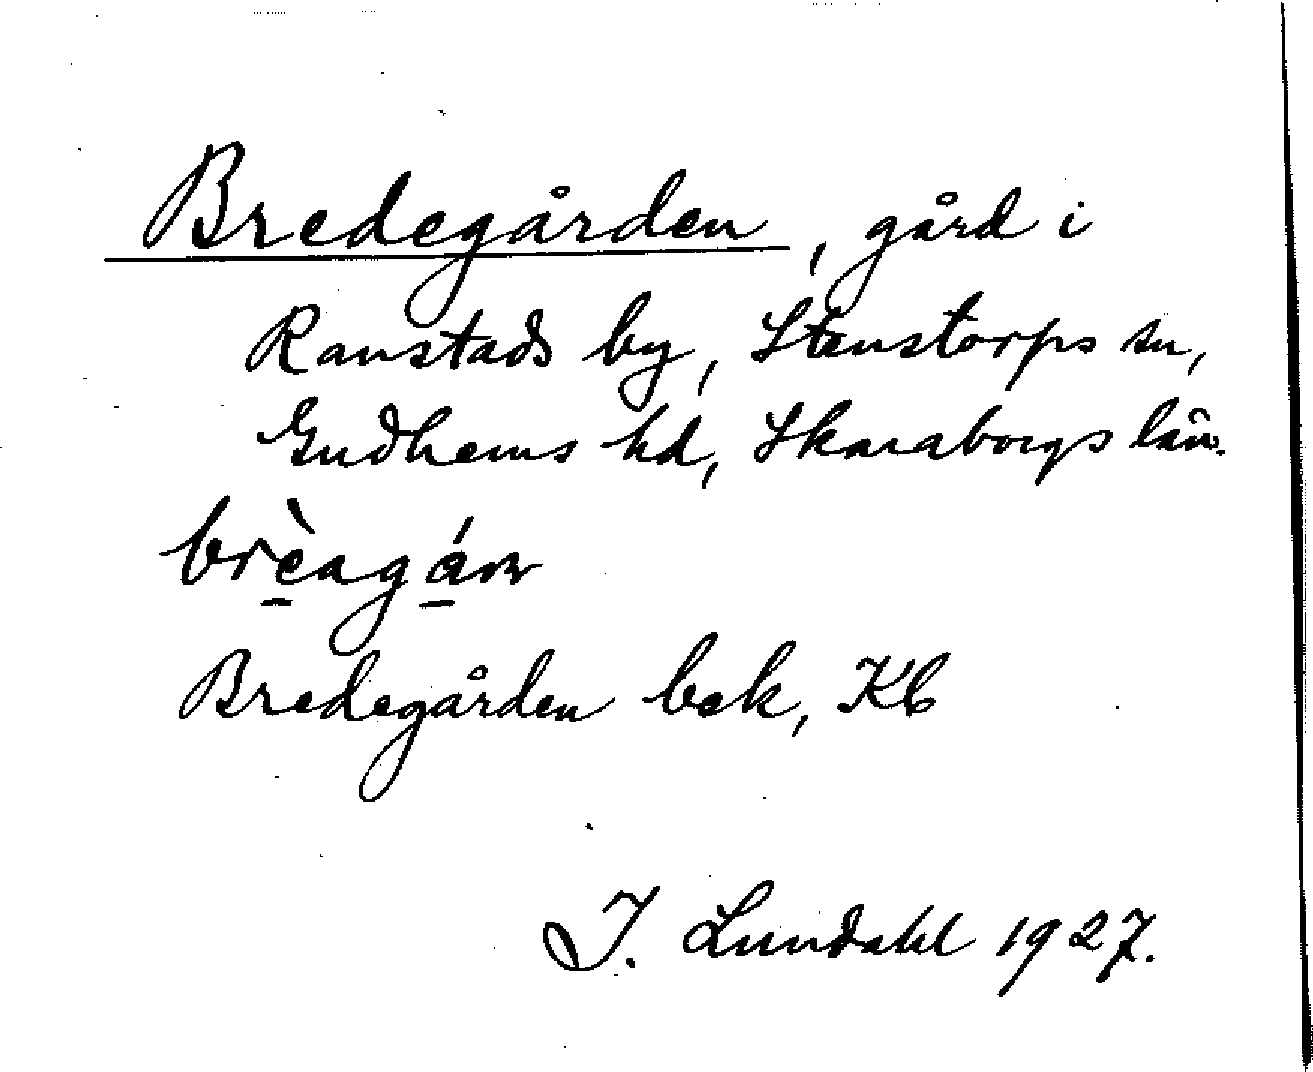 Bredegården, gård i
Ranstads by, Stenstorps sn,
Gudhems hd, Skaraborgs län.
brèagán
Bredegården bek, Kb
I. Lundahl 1927.